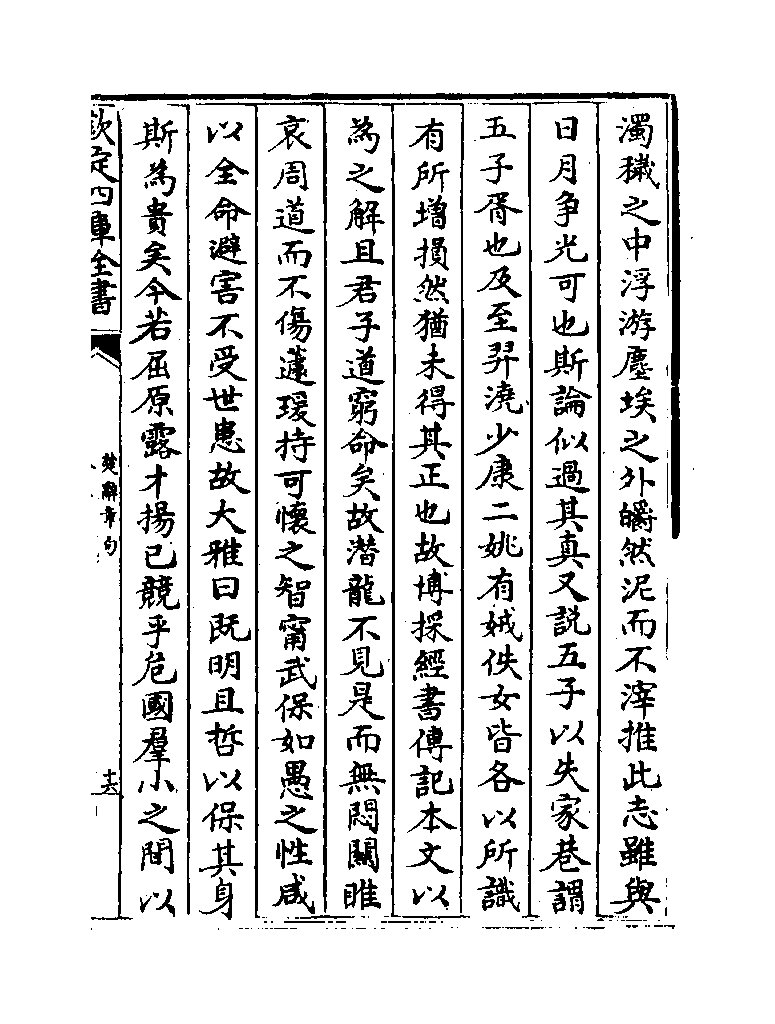 濁穢之中浮游塵埃之外皭然泥而不滓推此志雖與
日月争光可也斯論似過其真又説五子以失家巷謂
五子胥也及至羿澆少康二姚有娀佚女皆各以所識
有所增損然猶未得其正也故博採經書傳記本文以
為之解且君子道窮命矣故潛龍不見是而無悶關雎
哀周道而不傷蘧瑗持可懷之智甯武保如愚之性咸
以全命避害不受世患故大雅曰既明且哲以保其身
斯為貴矣今若屈原露才揚己競乎危國羣小之間以
欽定四庫全書
楚辭章句
十六